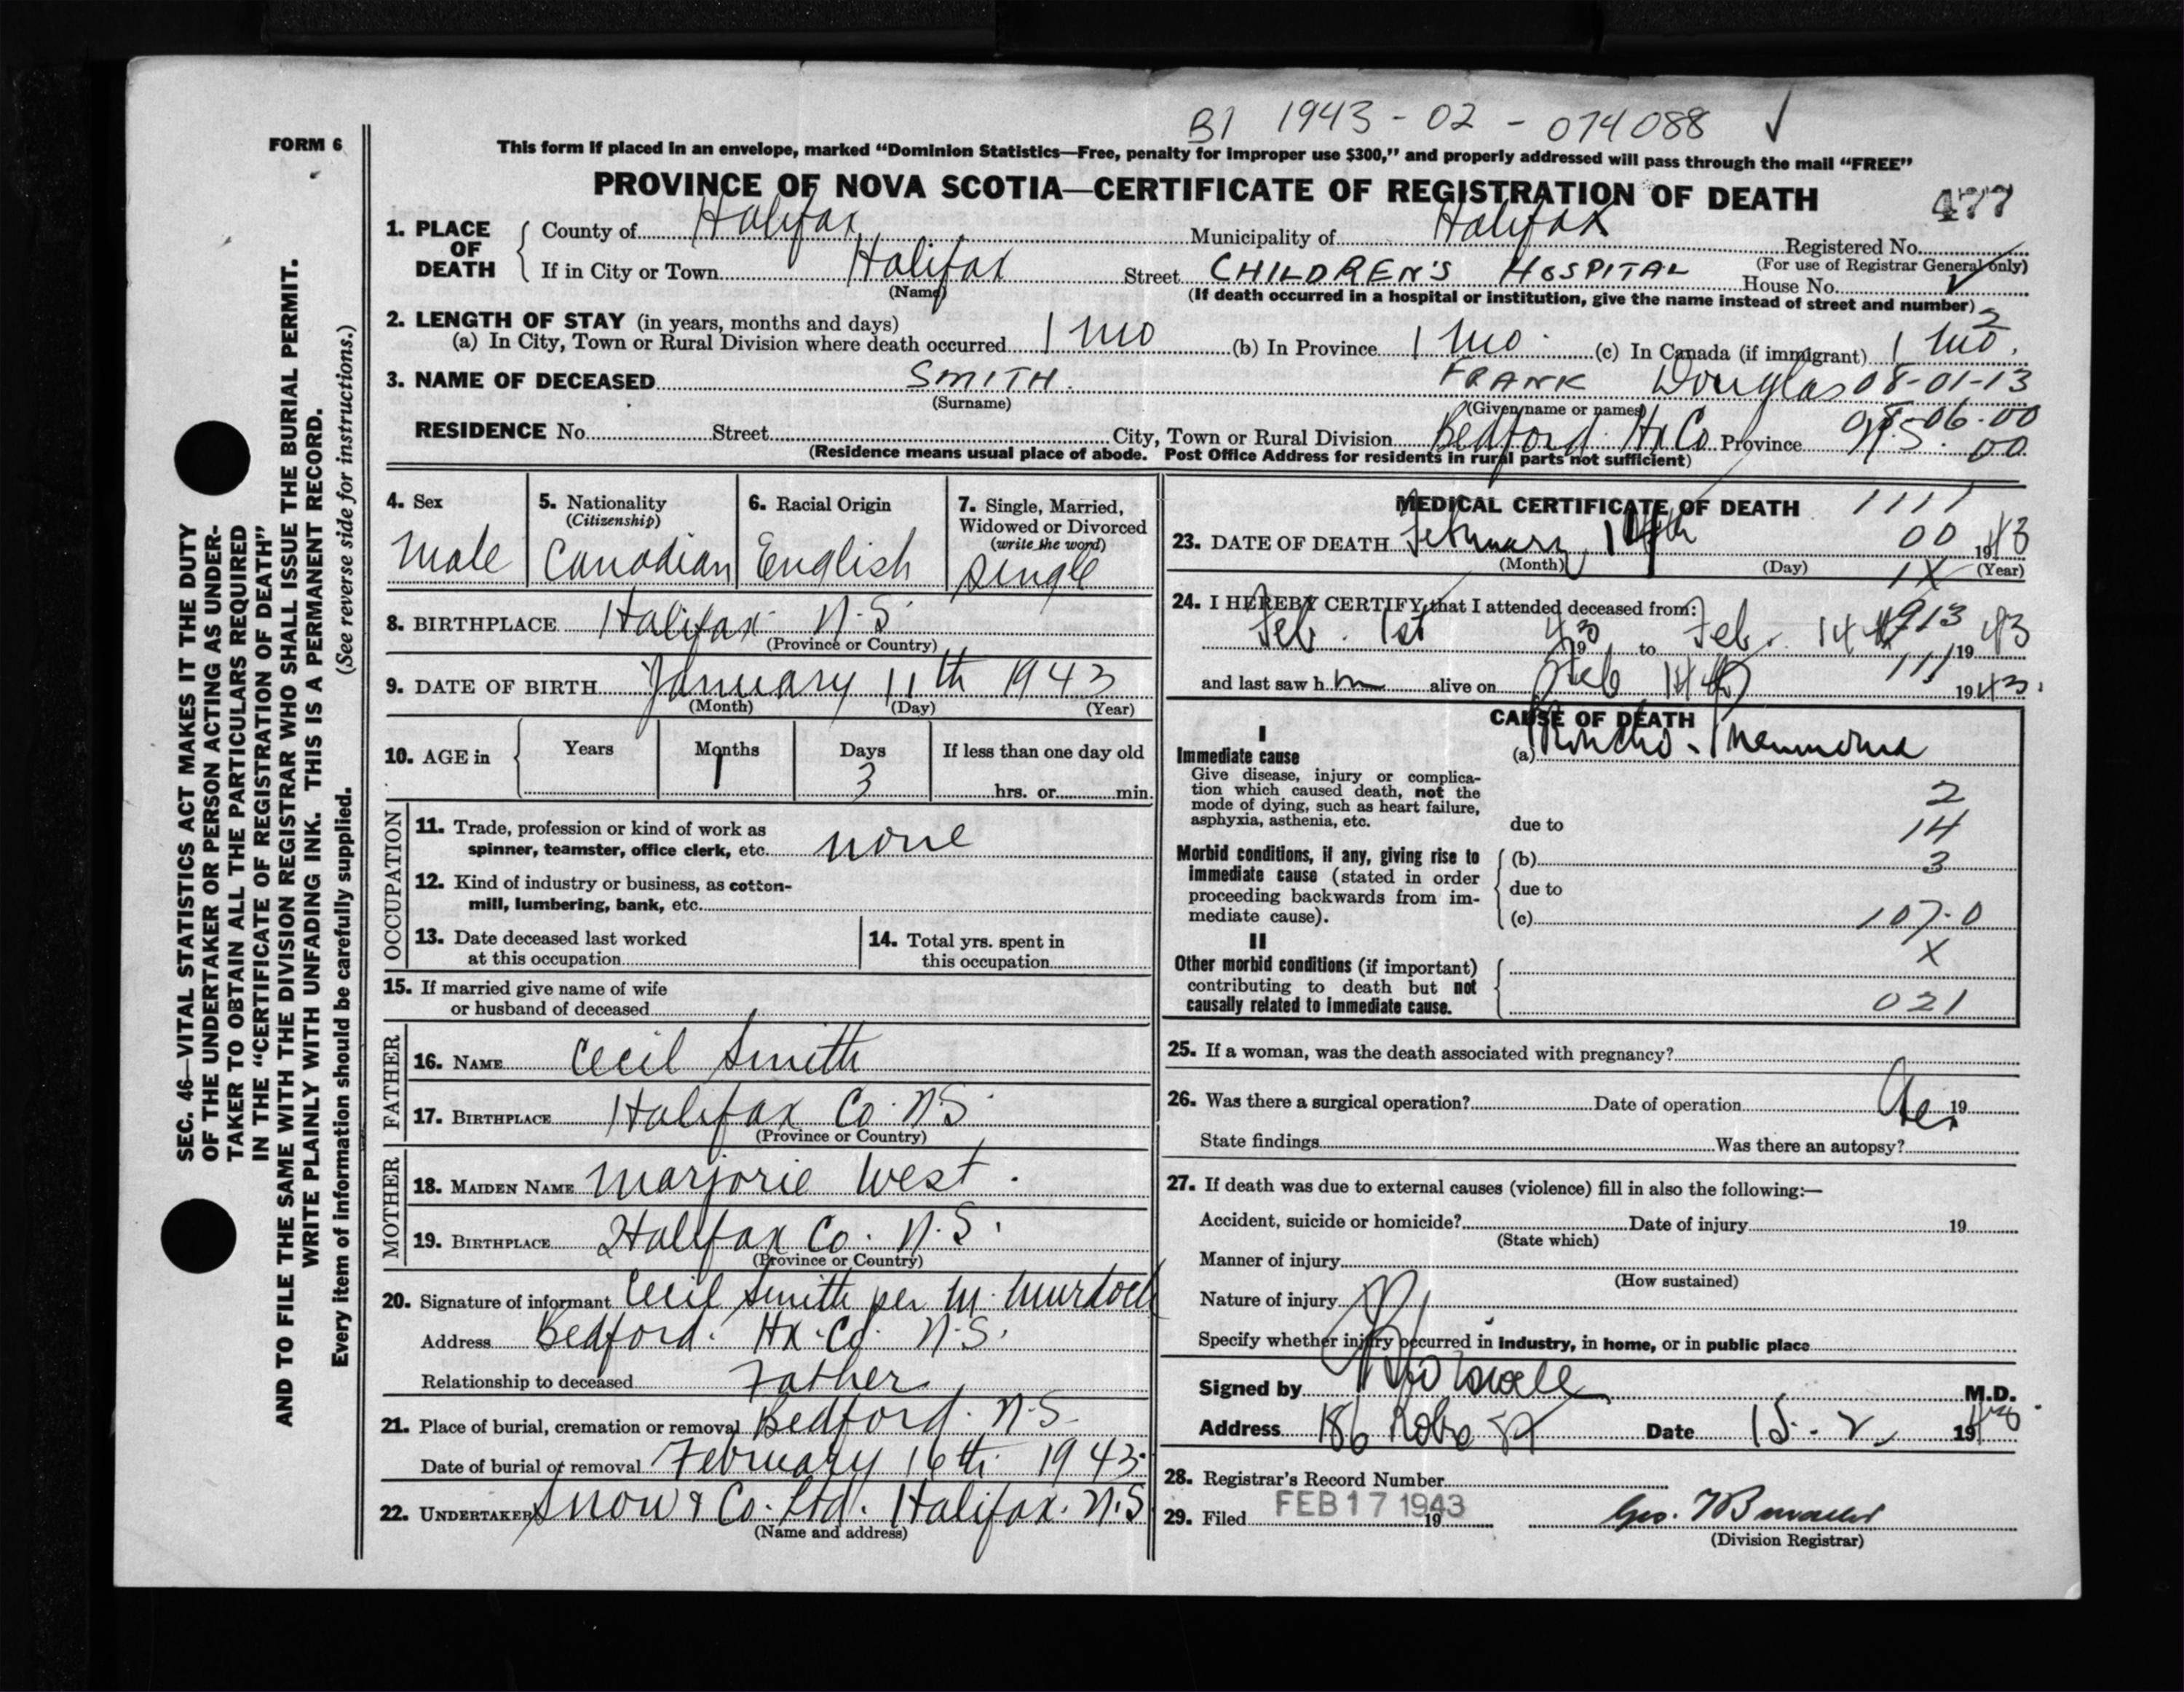 B1 1943-02-074088 ✓
FORM 6
This form if placed in an envelope, marked “Dominion Statistics—Free, penalty for improper use $300,” and properly addressed will pass through the mail “FREE”
PROVINCE OF NOVA SCOTIA—CERTIFICATE OF REGISTRATION OF DEATH
477
1. PLACE OF DEATH
County of Halifax Municipality of Halifax Registered No.
(For use of Registrar General only)
If in City or Town Halifax Street CHILDREN'S HOSPITAL House No.
(Name) (If death occurred in a hospital or institution, give the name instead of street and number)
2. LENGTH OF STAY (in years, months and days) 2
(a) In City, Town or Rural Division where death occurred 1 mo (b) In Province 1 mo. (c) In Canada (if immigrant) 1 mo.
3. NAME OF DECEASED SMITH. FRANK Douglas 08-01-13
(Surname) (Given name or names)
08-06-00
RESIDENCE No. Street City, Town or Rural Division Bedford Hx Co Province N.S. 00
(Residence means usual place of abode. Post Office Address for residents in rural parts not sufficient)
4. Sex
male
5. Nationality
(Citizenship)
Canadian
6. Racial Origin
English
7. Single, Married,
Widowed or Divorced
(write the word)
single
8. BIRTHPLACE Halifax N.S.
(Province or Country)
9. DATE OF BIRTH January 11th 1943
(Month) (Day) (Year)
10. AGE in Years Months Days If less than one day old
1 3 hrs. or min.
OCCUPATION
11. Trade, profession or kind of work as
spinner, teamster, office clerk, etc. none
12. Kind of industry or business, as cotton-
mill, lumbering, bank, etc.
13. Date deceased last worked
at this occupation
14. Total yrs. spent in
this occupation
15. If married give name of wife
or husband of deceased
FATHER
16. NAME Cecil Smith
17. BIRTHPLACE Halifax Co. N.S.
(Province or Country)
MOTHER
18. MAIDEN NAME Marjorie West.
19. BIRTHPLACE Halifax Co. N.S.
(Province or Country)
20. Signature of informant Cecil Smith per M. Murdock
Address Bedford. Hx. Co. N.S.
Relationship to deceased Father.
21. Place of burial, cremation or removal Bedford. N.S.
Date of burial or removal February 16th 1943
22. UNDERTAKER Snow & Co. Ltd. Halifax. N.S
(Name and address)
MEDICAL CERTIFICATE OF DEATH 1111
23. DATE OF DEATH February 14th 00 1943
(Month) (Day) (Year)
1X
24. I HEREBY CERTIFY that I attended deceased from:
Feb. 1st 1943 to Feb. 14th 1943
913
111
and last saw h m alive on Feb 14th 1943.
CAUSE OF DEATH
I
Immediate cause
Give disease, injury or complica-
tion which caused death, not the
mode of dying, such as heart failure,
asphyxia, asthenia, etc.
(a) Broncho-Pneumonia
2
due to 14
Morbid conditions, if any, giving rise to
immediate cause (stated in order
proceeding backwards from im-
mediate cause).
(b) 3
due to
(c) 107.0
II
X
Other morbid conditions (if important)
contributing to death but not
causally related to immediate cause.
021
25. If a woman, was the death associated with pregnancy?
26. Was there a surgical operation? Date of operation 19
State findings Was there an autopsy?
27. If death was due to external causes (violence) fill in also the following:—
Accident, suicide or homicide? Date of injury 19
(State which)
Manner of injury
(How sustained)
Nature of injury
Specify whether injury occurred in industry, in home, or in public place
Signed by M.D.
Address 186 Date 15.2. 1943.
28. Registrar's Record Number
29. Filed FEB 17 1943 19
(Division Registrar)
SEC. 46—VITAL STATISTICS ACT MAKES IT THE DUTY
OF THE UNDERTAKER OR PERSON ACTING AS UNDER-
TAKER TO OBTAIN ALL THE PARTICULARS REQUIRED
IN THE “CERTIFICATE OF REGISTRATION OF DEATH”
AND TO FILE THE SAME WITH THE DIVISION REGISTRAR WHO SHALL ISSUE THE BURIAL PERMIT.
WRITE PLAINLY WITH UNFADING INK. THIS IS A PERMANENT RECORD.
Every item of information should be carefully supplied. (See reverse side for instructions.)